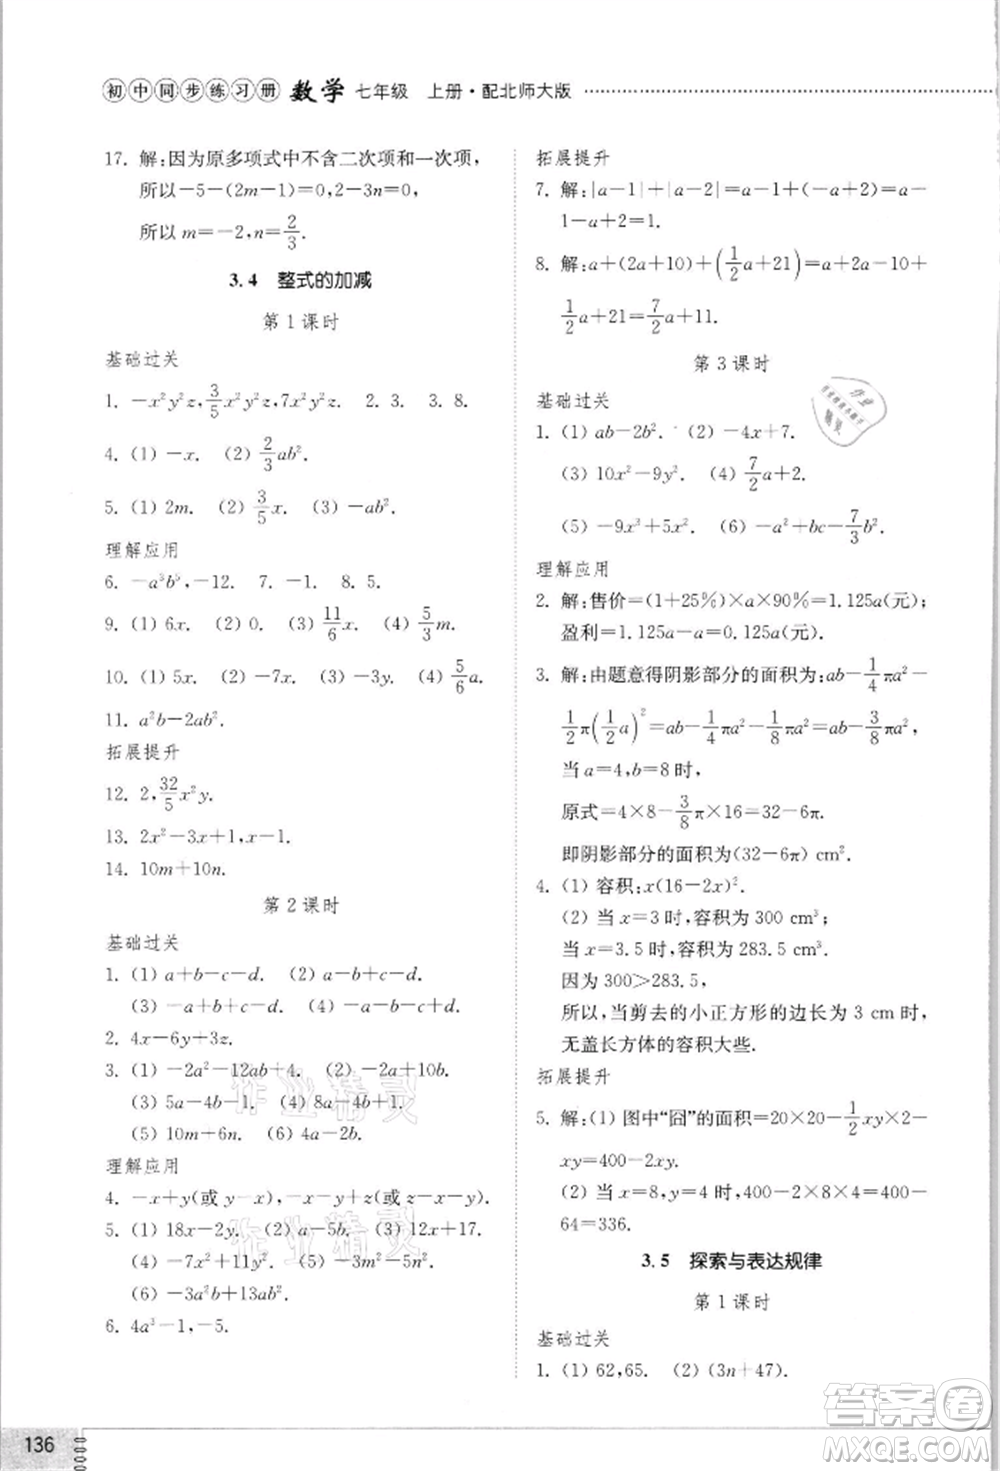 初中同步练习册 数学 七年级 上册·配北师大版
17. 解:因为原多项式中不含二次项和一次项,
所以-5-(2m-1)=0,2-3n=0,
所以 m=-2,n=2/3.
3.4 整式的加减
第1课时
基础过关
1. -x²y²z,3/5x²y²z,7x²y²z. 2. 3. 3. 8.
4. (1) -x. (2) 2/3ab².
5. (1) 2m. (2) 3/5x. (3) -ab².
理解应用
6. -a³b⁵,-12. 7. -1. 8. 5.
9. (1) 6x. (2) 0. (3) 11/6x. (4) 5/3m.
10. (1) 5x. (2) -9a. (3) 3x. (4) 5/6a.
11. a²b-2ab².
拓展提升
12. 2,32/5x²y.
13. 2x²-3x+1,x-1.
14. 10m+10n.
第2课时
基础过关
1. (1) a+b-c-d. (2) a+b-c-d.
(3) -a+b+c-d. (4) -a-b+c-d.
2. 4x-6y+3z.
3. (1) -2a²-12ab+4. (2) -x+1.
(3) 5a-4b-1. (4) -8y.
(5) 10m+6n. (6) 4a-2b.
理解应用
4. -x+y(或 y-x),-x-y(或-y-x).
5. (1) 18x-2y. (2) a-5b. (3) 12x+17.
(4) -7x²+11x². (5) -3m²-m.
(6) -3a²b+13ab²-2.
6. 4a³-1,-5.
拓展提升
7. 解:|a-1|+|a-2|=a-1-(a-2)=a-
1-a+2=1.
8. 解:a+(2a+10)+(1/2a+21)=a+2a+10+
1/2a+21=7/2a+11.
第3课时
基础过关
1. (1) ab-2b². (2) -4x+7.
(3) 10x²-9y². (4) 7/2a+2.
(5) -9x³+5x². (6) -a²+bc-7/3b².
理解应用
2. 解:售价=(1+25%)×a×90%=1.125a(元);
盈利=1.125a-a=0.125a(元).
3. 解:由题意得阴影部分的面积为 ab-1/4πa²-
1/2π(1/2a)²=ab-1/4πa²-1/8πa²=ab-3/8πa²,
当 a=4,b=8 时,
原式=4×8-3/8π×16=32-6π.
即阴影部分的面积为(32-6π) cm².
4. (1) 容积:x(16-2x)².
(2) 当 x=3 时,容积为 300 cm³;
当 x=3.5 时,容积为 283.5 cm³.
因为 300>283.5,
所以,当剪去的小正方形的边长为 3 cm 时,
无盖长方体的容积大些.
拓展提升
5. 解:(1) 图中“囧”的面积=20×20-1/2xy×2-
xy=400-2xy.
(2) 当 x=8,y=4 时,400-2×8×4=400-
64=336.
3.5 探索与表达规律
第1课时
基础过关
1. (1) 62,65. (2) (3n+47).
136
作业精灵
作业精灵
答案圈
MXQE.COM